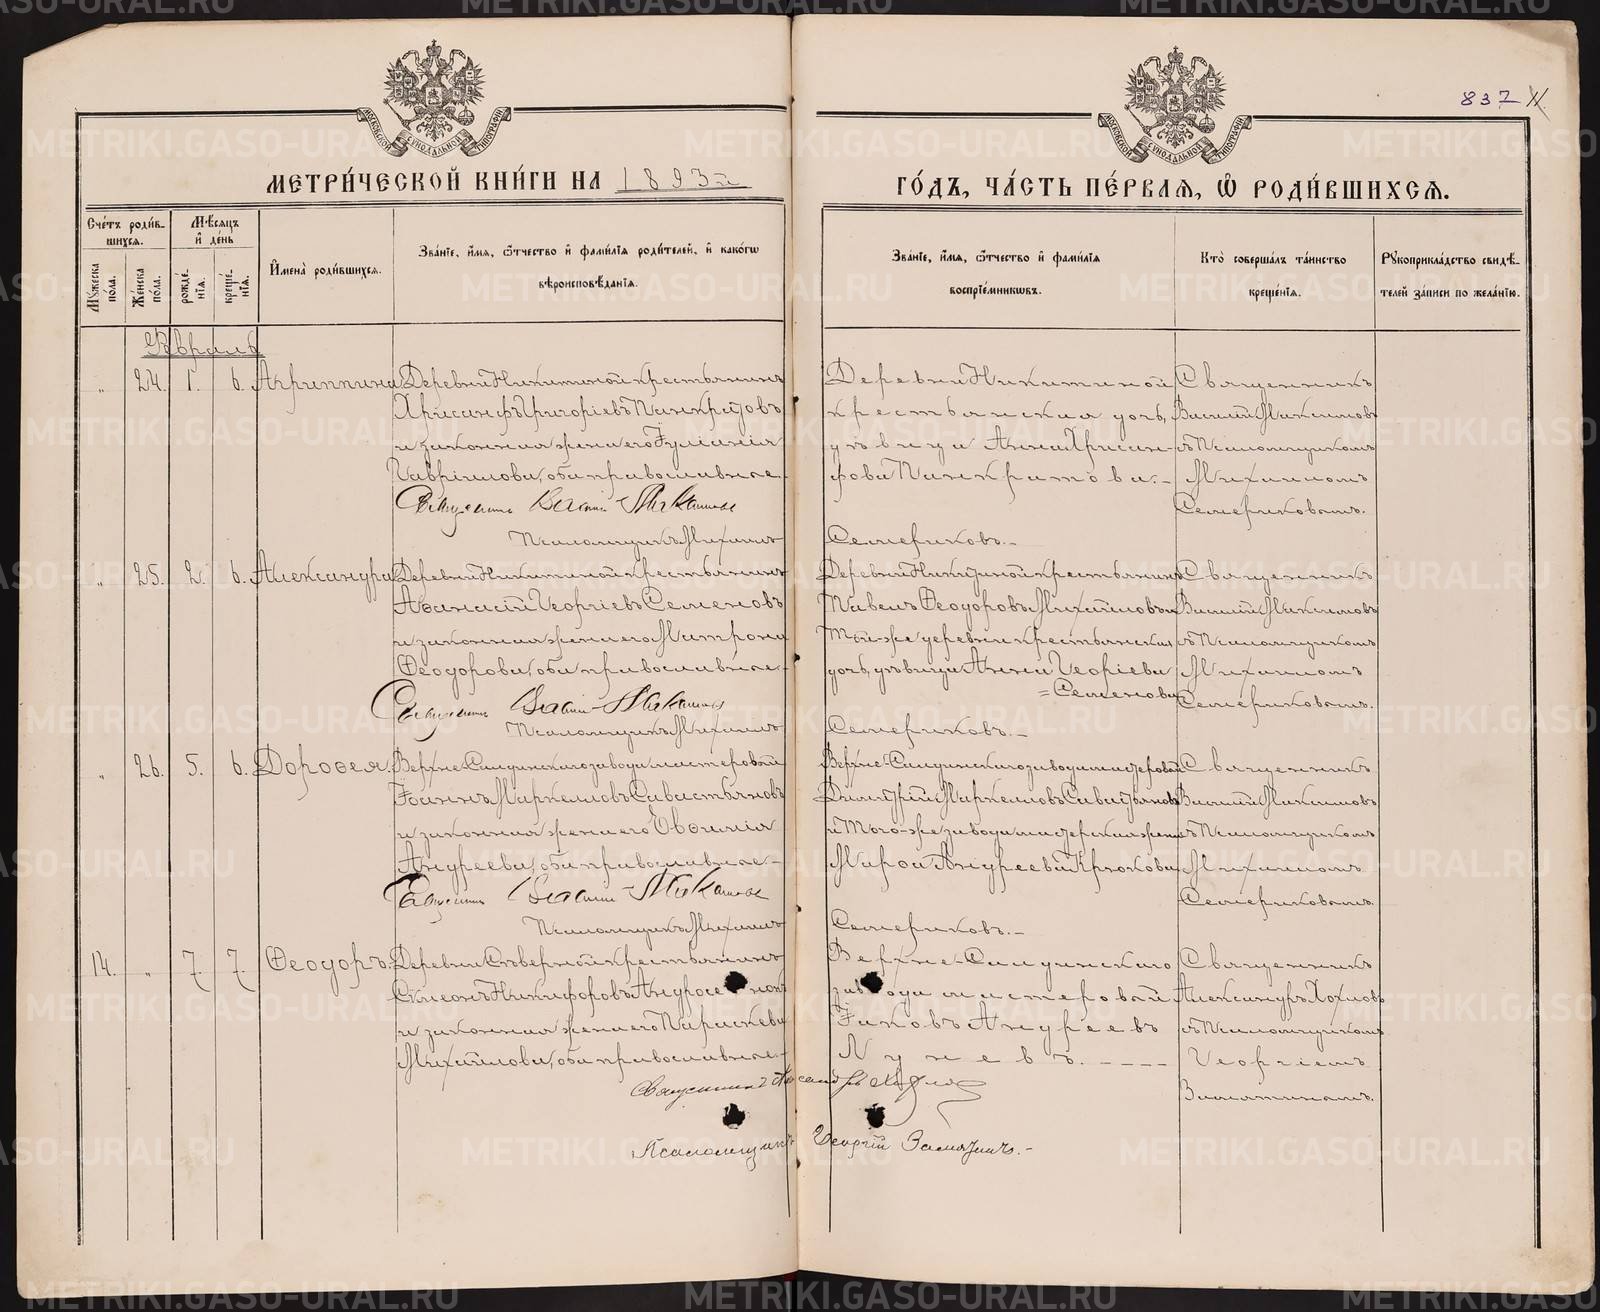 837
МОСКОВСКОЙ СѴНОДАЛЬНОЙ ТИПОГРАФІИ
МОСКОВСКОЙ СѴНОДАЛЬНОЙ ТИПОГРАФІИ
МЕТРИ́ЧЕСКОЙ КНИ́ГИ НА 1893й
ГО́ДЪ, ЧА́СТЬ ПЕ́РВАЯ, Ѡ РОДИ́ВШИХСЯ.
Сче́тъ роди́в-
шихся.
Мѣ́сяцъ
и де́нь
Му́жеска по́ла.
Же́нска по́ла.
рожде́-
нія.
креще́-
нія.
И҆мена̀ роди́вшихся.
Зва́ніе, и҆́мя, ѻ҆́тчество и҆ фами́лія роди́телей, и҆ како́гѡ
вѣроисповѣ́данія.
Зва́ніе, и҆́мя, ѻ҆́тчество и҆ фами́лія
воспріе́мниковъ.
Кто̀ соверша́лъ та́инство
креще́нія.
Рукоприкла́дство свидѣ́-
телей за́писи по жела́нію.
Февраль
„ 24. 1. 6. Агриппина
Деревни Никитиной крестьянинъ
Хрисанфъ Григоріевъ Панкратовъ
и законная жена его Іуліанія
Гавріилова, оба православные.
Священникъ Василій Максимовъ
Псаломщикъ Михаилъ
Деревни Никитиной
крестьянская дочь,
дѣвица Анна Хрисан-
фова Панкратова.-
Семериковъ.-
Священникъ
Василій Максимовъ
съ Псаломщикомъ
Михаиломъ
Семериковымъ.
„ 25. 2. 6. Александра
Деревни Никитиной крестьянинъ
Аѳанасій Георгіевъ Семеновъ
и законная жена его Матрона
Ѳеодорова, оба православные.-
Священникъ Василій Максимовъ
Псаломщикъ Михаилъ
Деревни Никитиной крестьянинъ
Павелъ Ѳеодоровъ Михайловъ и
той-же деревни крестьянская
дочь, дѣвица Анна Георгіева
=Семенова
Семериковъ.-
Священникъ
Василій Максимовъ
съ Псаломщикомъ
Михаиломъ
Семериковымъ.
„ 26. 5. 6. Дороѳея.
Верхне-Салдинскаго завода мастеровой
Іоаннъ Маркелловъ Савастьяновъ
и законная жена его Евѳимія
Андреева, оба православные.-
Священникъ Василій Максимовъ
Псаломщикъ Михаилъ
Верхне-Салдинскаго завода мастеровой
Димитрій Маркелловъ Савастьяновъ
и того-же завода мастерская жена
Андреева Крюкова
Семериковъ.-
Священникъ
Василій Максимовъ
съ Псаломщикомъ
Михаиломъ
Семериковымъ.
14. „ 7. 7. Ѳеодоръ.
Деревни Сѣверной крестьянинъ
Симеонъ Никифоровъ
и законная жена его Параскева
Михайлова, оба православные.-
Священникъ Александръ Хохловъ
Псаломщикъ Георгій Замятинъ.-
Верхне-Салдинскаго
завода мастеровой
Іаковъ Андреевъ
Священникъ
Александръ Хохловъ
съ Псаломщикомъ
Георгіемъ
Замятинымъ.
METRIKI.GASO-URAL.RU